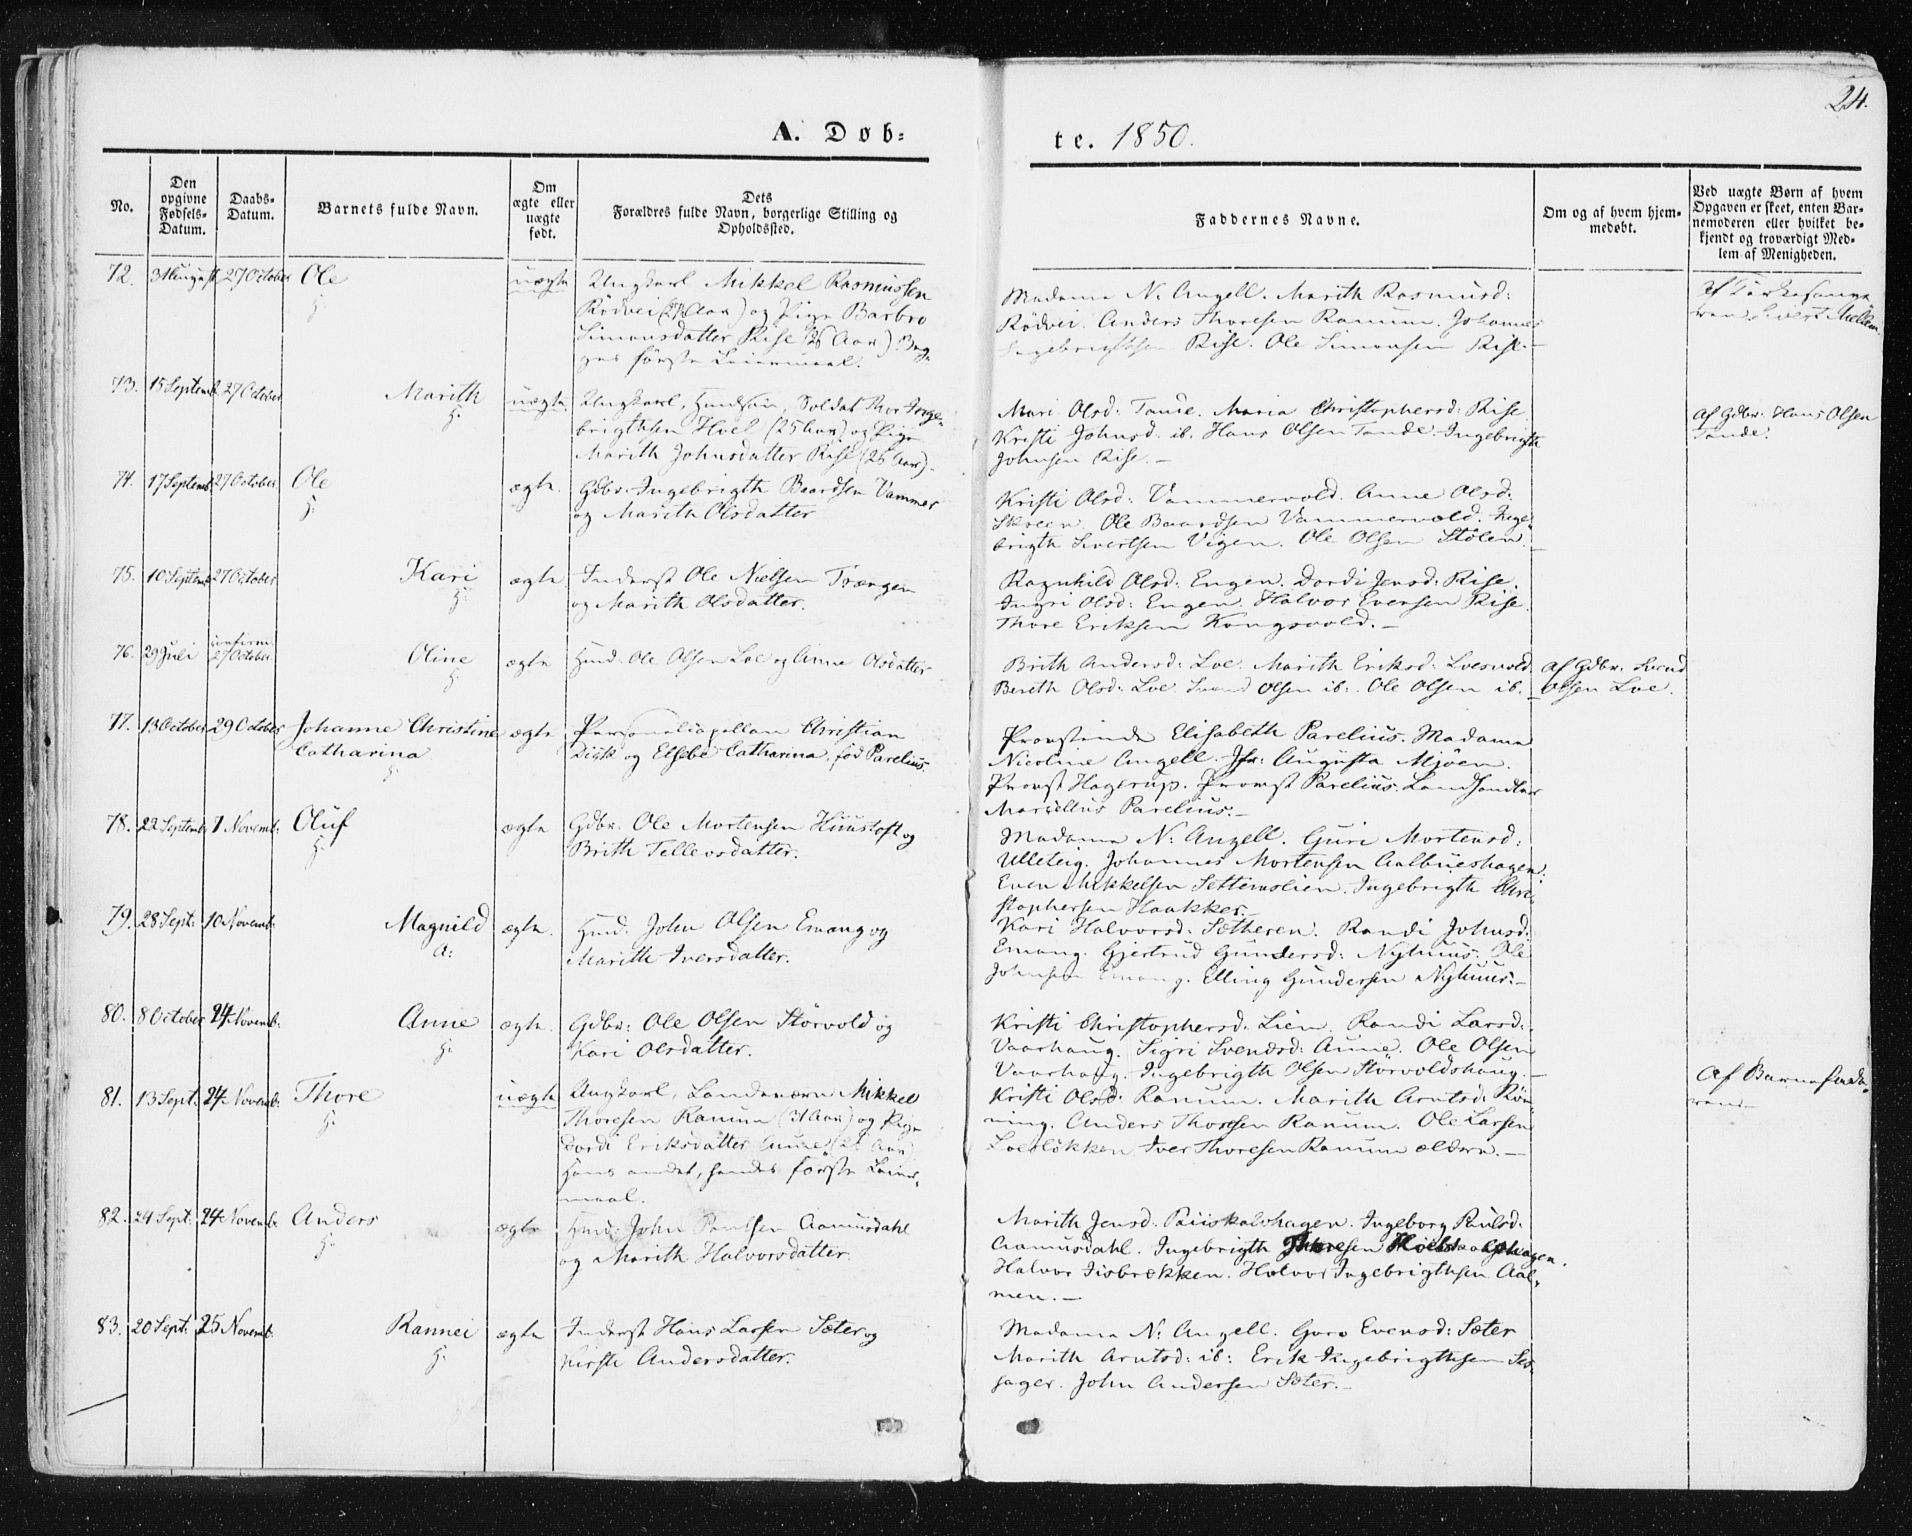 24.
A. Døb-
te. 1850.
No.
Den opgivne Fødsels-Datum.
Daabs-Datum.
Barnets fulde Navn.
Om ægte eller uægte født.
Dets Forældres fulde Navn, borgerlige Stilling og Opholdssted.
Faddernes Navne.
Om og af hvem hjem-medøbt.
Ved uægte Børn af hvem Opgaven er skeet, enten Bar-nemoderen eller hvilket be-kjendt og troværdigt Med-lem af Menigheden.
72. 3 August 27 October Ole uægte Ungkarl Mikkel Rasmussen
H:
Rödvei (27 Aar) og Pige Barbro
Simonsdatter Rise (26 Aar) Beg-
ges første Leiermaal.
Madame N: Angell. Marith Rasmusd:
Rödvei. Anders Thoresen Ranum. Johannes
Ingebrigthsen Rise. Ole Simonsen Rise.-
Af Kirkesanger
Sivert Mellem.
73. 15 Septemb. 27 October Marith uægte Ungkarl, Huusm, Soldat Thor Inge-
H:
brigthsen Hoel (25 Aar) og Pige
Marith Johnsdatter Rise (26 Aar).
Mari Olsd: Tande. Maria Christophersd: Rise.
Kristi Johnsd. ib. Hans Olsen Tande. Ingebrigth
Johnsen Rise.-
Af Gdbr. Hans Olsen
Tande.
74. 17 Septemb 27 October Ole ægte Gdbr. Ingebrigth Baardsen Vammer
H:
og Marith Olsdatter
Kristi Olsd: Vammervold. Anne Olsd:
Skreen. Ole Baardsen Vammervold. Inge-
brigth Sivertsen Vigen. Ole Olsen Stölen.-
75. 10 Septemb 27 October Kari ægte Inderst Ole Nielsen Tværgen
H:
og Marith Olsdatter.
Ragnhild Olsd: Engen. Dordi Jensd: Rise.
Ingri Olsd: Engen. Halvor Evensen Rise.
Thore Eriksen Kongsvold.-
76. 29 Juli confirm. 27 October Oline ægte Huusm. Ole Olsen Loe og Anne Olsdatter
H:
Brith Andersd: Loe. Marith Eriksd: Loesvold
Berith Olsd: Loe. Svend Olsen ib: Ole Olsen ib.-
Af Gdbr. Svend
Olsen Loe.
77. 13 October 29 October Johanne Christine ægte Personelcapellan Christian
Catharina
H:
Dick og Elsebe Catharina, fød Parelius.
Provstinde Elisabeth Parelius. Madame
Nicoline Angell. Jfr: Augusta Mjöen.
Provst Hagerup. Provst Parelius. Landhandler
Marcellius Parelius.-
78. 22 Septemb 7 Novemb: Oluf ægte Gdbr. Ole Mortensen Huustoft og
H:
Brith Tellevsdatter.
Madame N: Angell. Guri Mortensd:
Ulleleig. Johannes Mortensen Aalbueshagen.
Even Mikkelsen Settemslien. Ingebrigth Chri-
stophersen Haakker.-
79. 28 Sept: 10 Novemb: Magnild ægte Huusm. John Olsen Emang og
A:
Marith Iversdatter.
Kari Halvorsd: Sætheren. Randi Johnsd:
Emang. Gjertrud Gundersd: Nyhuus. Ole
Johnsen Emang. Elling Gundersen Nyhuus.-
80. 8 October 24 Novemb: Anne ægte Gdbr: Ole Olsen Störvold og
H:
Kari Olsdatter.
Kristi Christophersd: Lien. Randi Larsd:
Vaarhaug. Sigri Svendsd: Aune. Ole Olsen
Vaarhaug. Ingebrigth Olsen Störvoldshaug.-
81. 13 Sept: 24 Novemb: Thore uægte Ungkarl, Landeværn Mikkel
H:
Thoresen Ranum (31 Aar) og Pige
Dordi Eriksdatter Aune (26 Aar)
Hans andet, hendes første Leier-
maal.
Kristi Olsd: Ranum. Marith Arntsd: Rön-
ning. Anders Thoresen Ranum. Ole Larsen
Loeslökken. Iver Thoresen Ranum ældere.-
Af Barnefade-
ren.-
82. 24 Sept: 24 Novemb: Anders ægte Huusm: John Poulsen Aamusdahl
H:
og Marith Halvorsdatter.
Marith Jensd: Puiskalshagen. Ingeborg Poulsd:
Aamusdahl. Ingebrigth Thoresen
Halvor Iisbrekken. Halvor Ingebrigthsen Aal-
men.-
83. 20 Sept: 25 Novemb: Rannei ægte Inderst Hans Larsen Sæter og
H:
Kirsti Andersdatter.
Madame N: Angell. Guro Evensd: Sæter
Marith Arntsd: ib: Erik Ingebrigthsen Ses-
hager. John Andersen Sæter.-